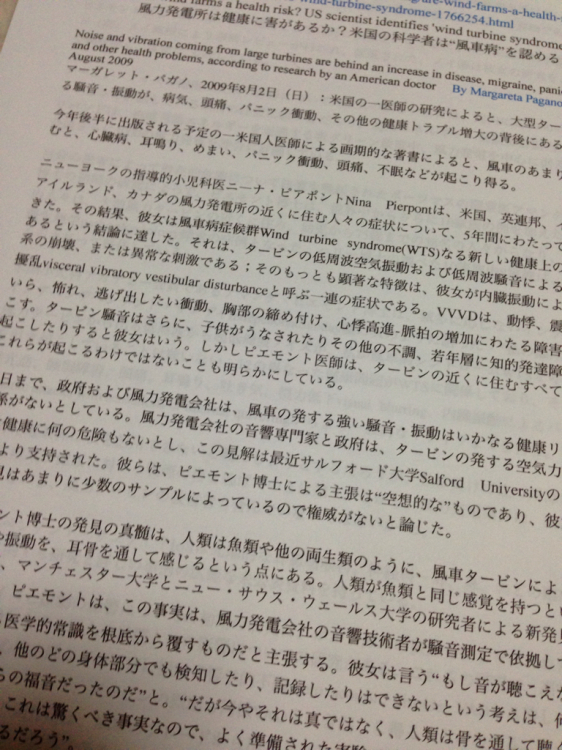 farms a health risk? US scientist identifies 'wind turbine syndrome
風力発電所は健康に害があるか？米国の科学者は“風車病”を認める
Noise and vibration coming from large turbines are behind an increase in disease, migraine, panic
and other health problems, according to research by an American doctor By Margareta Pagano
August 2009
マーガレット・パガノ、2009年8月2日（日）：米国の一医師の研究によると、大型ター
る騒音・振動が、病気、頭痛、パニック衝動、その他の健康トラブル増大の背後にある
今年後半に出版される予定の一米国人医師による画期的な著書によると、風車のあまり
むと、心臓病、耳鳴り、めまい、パニック衝動、頭痛、不眠などが起こり得る。
ニューヨークの指導的小児科医ニーナ・ピアポントNina Pierpontは、米国、英連邦、イ
アイルランド、カナダの風力発電所の近くに住む人々の症状について、5年間にわたって
きた。その結果、彼女は風車病症候群Wind turbine syndrome(WTS)なる新しい健康上の
あるという結論に達した。それは、タービンの低周波空気振動および低周波騒音による
系の崩壊、または異常な刺激である；そのもっとも顕著な特徴は、彼女が内臓振動によ
擾乱visceral vibratory vestibular disturbanceと呼ぶ一連の症状である。VVVDは、動悸、震
いら、怖れ、逃げ出したい衝動、胸部の締め付け、心悸高進-脈拍の増加にわたる障害
こす。タービン騒音はさらに、子供がうなされたりその他の不調、若年層に知的発達障
起こしたりすると彼女はいう。しかしピエモント医師は、タービンの近くに住むすべて
これらが起こるわけではないことも明らかにしている。
日まで、政府および風力発電会社は、風車の発する強い騒音・振動はいかなる健康リ
係がないとしている。風力発電会社の音響専門家と政府は、タービンの発する空気力
健康に何の危険もないとし、この見解は最近サルフォード大学Salford Universityの
より支持された。彼らは、ピエモント博士による主張は“空想的な”ものであり、彼
見はあまりに少数のサンプルによっているので権威がないと論じた。
ント博士の発見の真髄は、人類は魚類や他の両生類のように、風車タービンによ
や振動を、耳骨を通して感じるという点にある。人類が魚類と同じ感覚を持つとい
、マンチェスター大学とニュー・サウス・ウェールス大学の研究者による新発見
ピエモントは、この事実は、風力発電会社の音響技術者が騒音測定で依拠して
医学的常識を根底から覆すものだと主張する。彼女は言う“もし音が聴こえな
、他のどの身体部分でも検知したり、記録したりはできないという考えは、何
らの福音だったのだ”と。“だが今やそれは真ではなく、人類は骨を通して聴く
これは驚くべき事実なので、よく準備された実験
るだろう”。